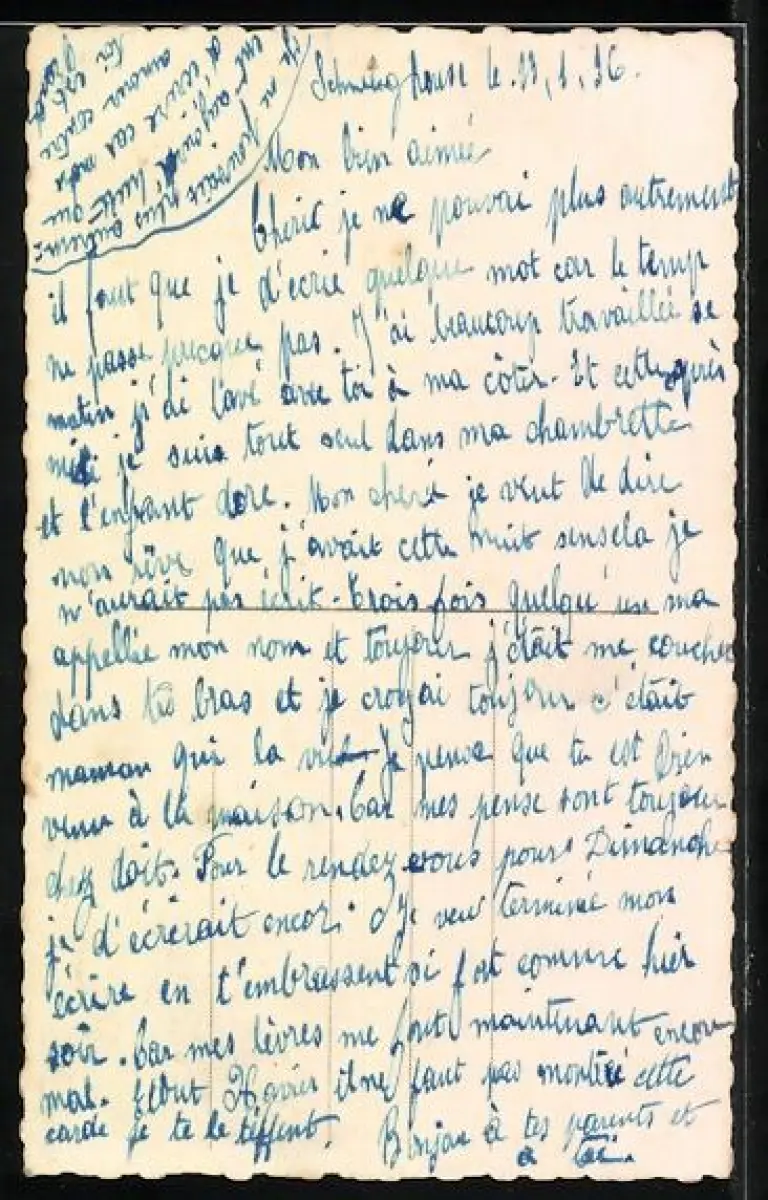 le. 11, 1, 36.
Mon bien aimée
Cheric je ne pouvai plus autrement
il faut que je d'ecrie quelque mot car le temp
ne passe presque pas. J'ai beaucoup travaillée se
matin j'ai lavé avec toi à ma côter. Et cette après
midi je suis tout seul dans ma chambrette
et l'enfant dore. Mon cheré je veut de dire
mon rêve que j'avait cette nuit sensela je
n'aurait pas écrit. Trois fois quelqu'un ma
appellée mon nom et toujour j'était me coucher
dans tes bras et je croyai toujour c'était
maman qui la Je pense que tu est bien
venu à la maison. Car mes pense sont toujour
chez doit. Pour le rendez vous pour Dimanche
je d'écrerait encor. Je veu terminée mon
écrire en t'embrassent si fort comme hier
soir. Car mes lèvres me font maintenant encor
mal. il ne faut pas montrée cette
carde je te le tiffent. Bonjour à tes parents et
a toi.
Je ne pourrais plus autrem:
ent aujourd'huit que
d'ecrire cas mon
amour contre
toi est
grand